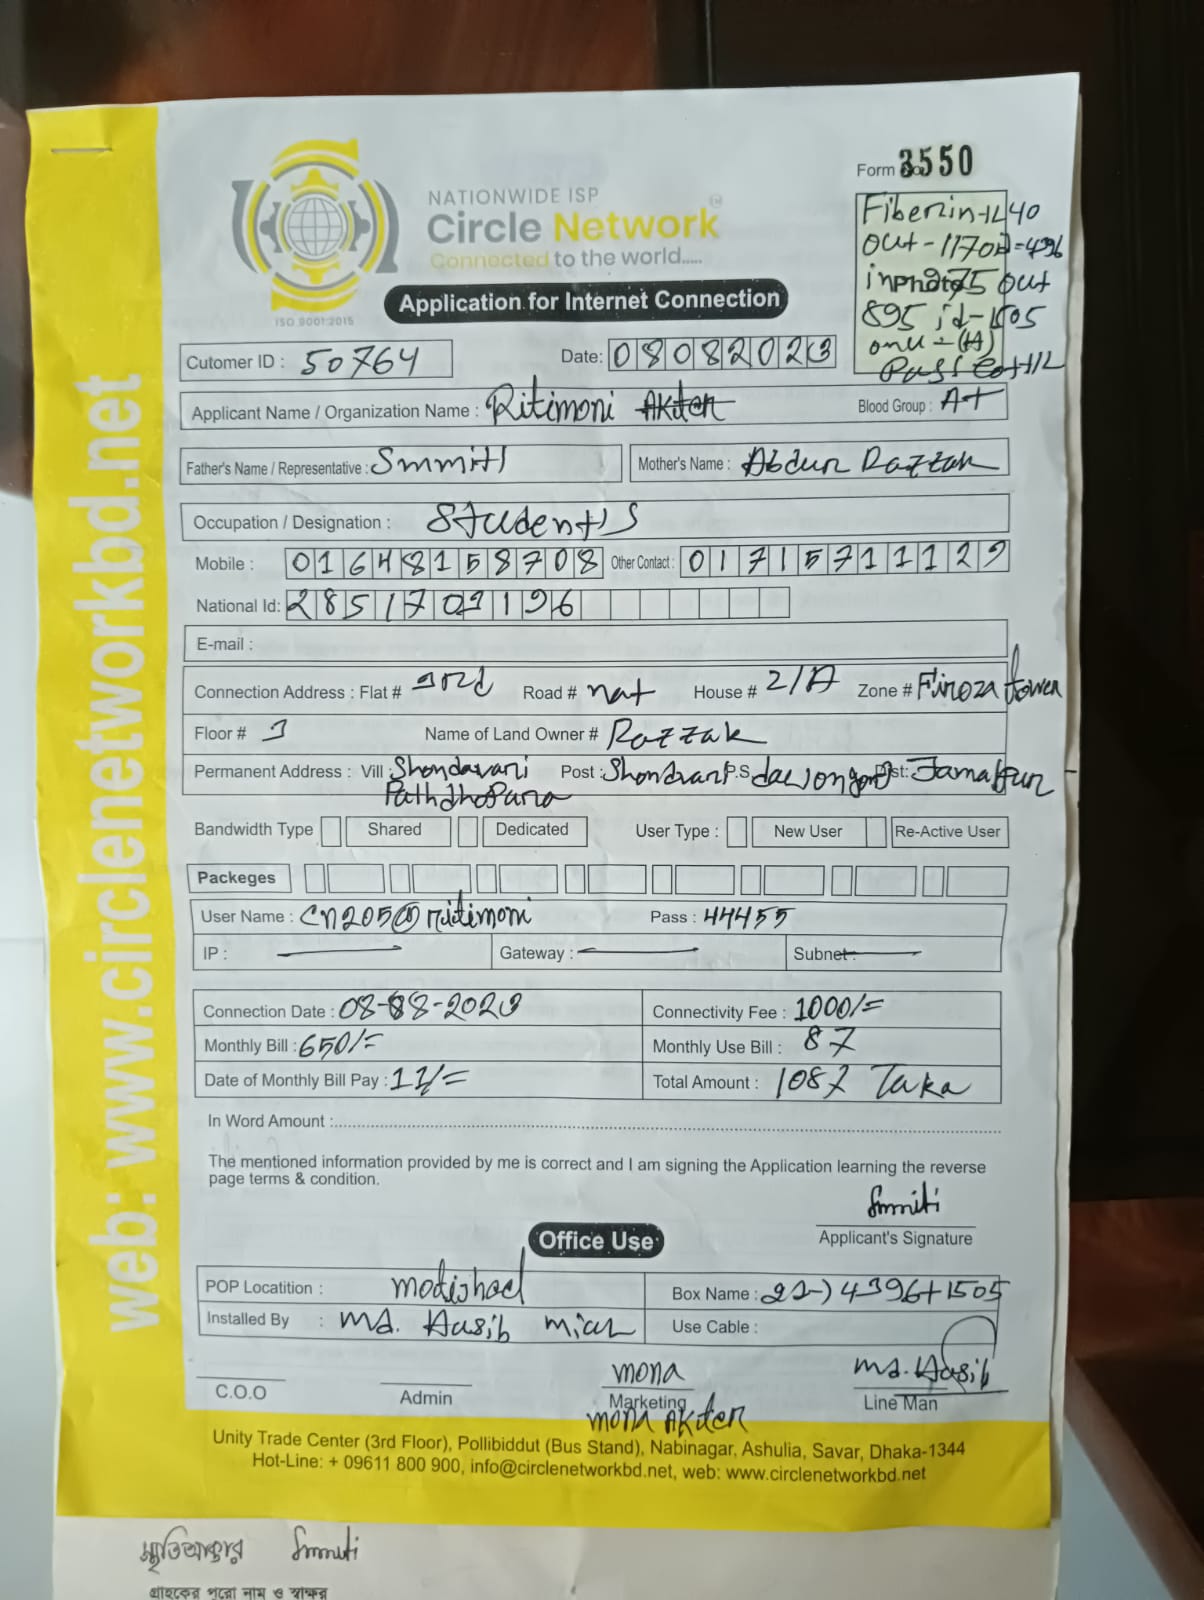 Form No. 3550
NATIONWIDE ISP
Circle Network
Connected to the world.....
ISO 9001:2015
Application for Internet Connection
Fiber in-1L40
out - 1170
in 75 out
895 id-1505
onu - (A)
Pass
Cutomer ID : 50764
Date: 08082023
Applicant Name / Organization Name : Ritimoni Akter
Blood Group : A+
Father's Name / Representative : Smmiti
Mother's Name : Abdur Razzak
Occupation / Designation : Students
Mobile : 01648158708 Other Contact : 01715711129
National Id: 2851709196
E-mail :
Connection Address : Flat # 3rd Road # nat House # 2/A Zone # Firoza tower
Floor # 3 Name of Land Owner # Razzak
Permanent Address : Vill : Shondavari Post : P.S Dist: Jamalpur
Pathdhopara
Bandwidth Type Shared Dedicated User Type : New User Re-Active User
Packeges
User Name : CN205@ritimoni Pass : 44455
IP : Gateway : Subnet :
Connection Date : 08-08-2023 Connectivity Fee : 1000/=
Monthly Bill : 650/= Monthly Use Bill : 87
Date of Monthly Bill Pay : 11/= Total Amount : 1087 Taka
In Word Amount :
The mentioned information provided by me is correct and I am signing the Application learning the reverse
page terms & condition.
Smmiti
Applicant's Signature
Office Use
POP Locatition : Box Name : 22-) 4396+1505
Installed By : Md. Hasib miah Use Cable :
mona Md. Hasib
C.O.O Admin Marketing Line Man
mona Akter
Unity Trade Center (3rd Floor), Pollibiddut (Bus Stand), Nabinagar, Ashulia, Savar, Dhaka-1344
Hot-Line: + 09611 800 900, info@circlenetworkbd.net, web: www.circlenetworkbd.net
web: www.circlenetworkbd.net
স্মৃতি আক্তার Smmiti
গ্রাহকের পুরো নাম ও স্বাক্ষর